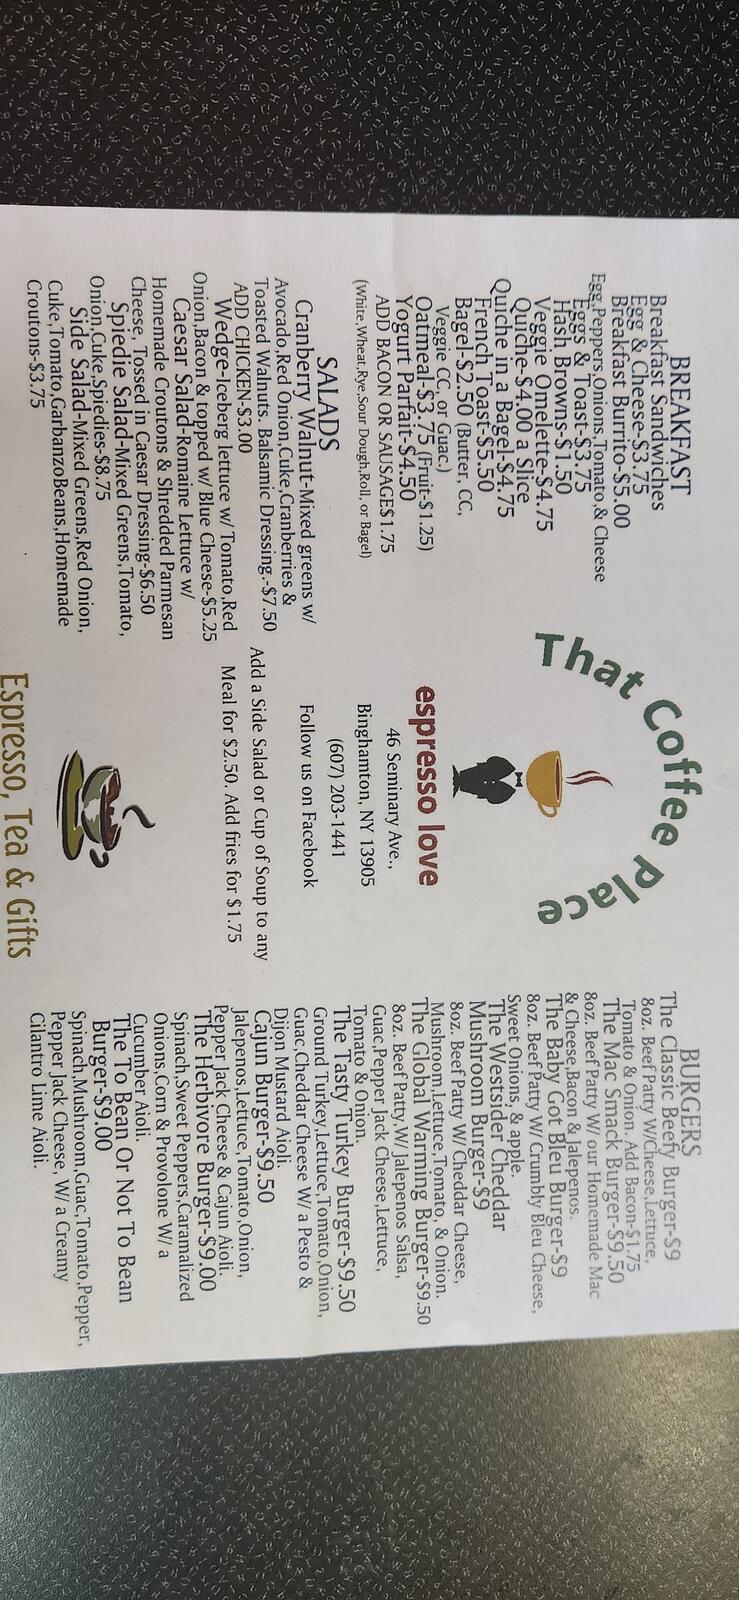 BREAKFAST
Breakfast Sandwiches
Egg & Cheese-$3.75
Breakfast Burrito-$5.00
Egg,Peppers,Onions,Tomato,& Cheese
Eggs & Toast-$3.75
Hash Browns-$1.50
Veggie Omelette-$4.75
Quiche-$4.00 a Slice
Quiche in a Bagel-$4.75
French Toast-$5.50
Bagel-$2.50 (Butter, CC,
Veggie CC, or Guac.)
Oatmeal-$3.75 (Fruit-$1.25)
Yogurt Parfait-$4.50
ADD BACON OR SAUSAGE$1.75
(White,Wheat,Rye,Sour Dough,Roll, or Bagel)
SALADS
Cranberry Walnut-Mixed greens w/
Avocado,Red Onion,Cuke,Cranberries &
Toasted Walnuts. Balsamic Dressing.-$7.50
ADD CHICKEN-$3.00
Wedge-Iceberg lettuce w/ Tomato,Red
Onion,Bacon & topped w/ Blue Cheese-$5.25
Caesar Salad-Romaine Lettuce w/
Homemade Croutons & Shredded Parmesan
Cheese, Tossed in Caesar Dressing-$6.50
Spiedie Salad-Mixed Greens,Tomato,
Onion,Cuke,Spiedies-$8.75
Side Salad-Mixed Greens,Red Onion,
Cuke,Tomato,GarbanzoBeans,Homemade
Croutons-$3.75
That Coffee Place
espresso love
46 Seminary Ave.,
Binghamton, NY 13905
(607) 203-1441
Follow us on Facebook
Add a Side Salad or Cup of Soup to any
Meal for $2.50. Add fries for $1.75
Espresso, Tea & Gifts
BURGERS
The Classic Beefy Burger-$9
8oz. Beef Patty W/Cheese,Lettuce,
Tomato & Onion. Add Bacon-$1.75
The Mac Smack Burger-$9.50
8oz. Beef Patty W/ our Homemade Mac
& Cheese,Bacon & Jalepenos.
The Baby Got Bleu Burger-$9
8oz. Beef Patty W/ Crumbly Bleu Cheese,
Sweet Onions, & apple.
The Westsider Cheddar
Mushroom Burger-$9
8oz. Beef Patty W/ Cheddar Cheese,
Mushroom,Lettuce,Tomato, & Onion.
The Global Warming Burger-$9.50
8oz. Beef Patty,W/ Jalepenos Salsa,
Guac,Pepper Jack Cheese,Lettuce,
Tomato & Onion.
The Tasty Turkey Burger-$9.50
Ground Turkey,Lettuce,Tomato,Onion,
Guac,Cheddar Cheese W/ a Pesto &
Dijon Mustard Aioli.
Cajun Burger-$9.50
Jalepenos,Lettuce,Tomato,Onion,
Pepper Jack Cheese & Cajun Aioli.
The Herbivore Burger-$9.00
Spinach,Sweet Peppers,Caramalized
Onions,Corn & Provolone W/ a
Cucumber Aioli.
The To Bean Or Not To Bean
Burger-$9.00
Spinach,Mushroom,Guac,Tomato,Pepper,
Pepper Jack Cheese, W/ a Creamy
Cilantro Lime Aioli.